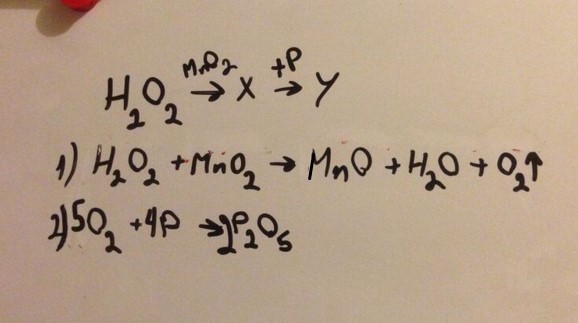 H₂O₂ MnO₂→ X +P→ Y
1) H₂O₂ + MnO₂ → MnO + H₂O + O₂↑
2) 5O₂ + 4P → 2P₂O₅